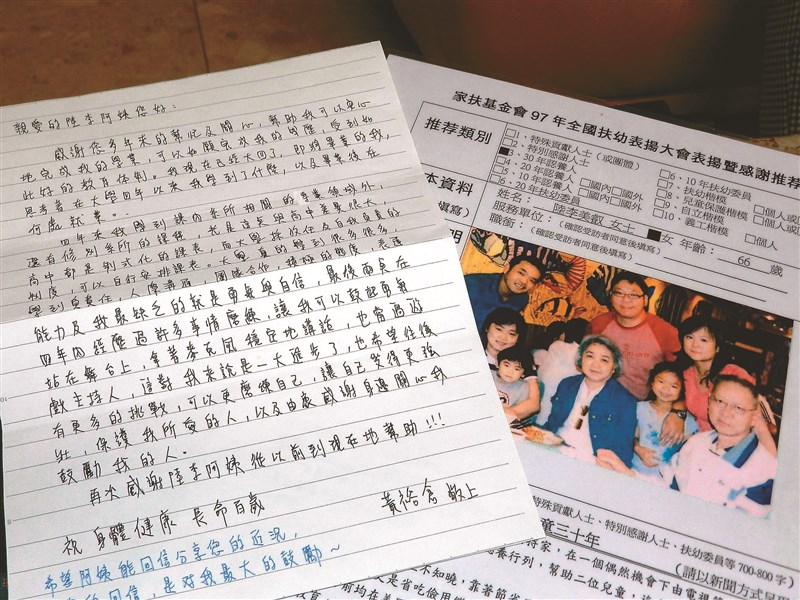 親愛的陸李阿姨您好：
感謝您多年來的幫忙及關心，幫助我可以安心
地完成我的學業，可以如願完成我的
此好的教育体制。我現在已經大四了，即將畢業的我，
思考著在大學四年以來我學到了什麼，以及畢業後在
何處就業。
四年來我學到該的系所相關的專業領域外，
還有修別系所的課程，尤是這點與高中差異很大，
高中都是制式化的課表，而大學採放任及自我負責的
制度，可以自行安排課表。大學真的學到很多很多，
學到負責任，人際溝通，團隊合作，積極的態度，表達
能力及我最缺乏的就是勇氣與自信，最後兩點在
四年內經歷過許多事情磨練，讓我可以鼓起勇氣
站在舞台上，拿著麥克風穩定地講話，也當過遊
戲主持人，這對我來說是一大進步了，也希望往後
有更多的挑戰，可以更磨練自己，讓自己變得更強
壯，保護我所愛的人，以及由衷感謝身邊關心我
鼓勵我的人。
再次感謝陸李阿姨從以前到現在地幫助!!!
祝 身體健康 長命百歲
黃裕倉 敬上
希望阿姨能回信分享您的近況，
的回信，是對我最大的鼓勵～
家扶基金會97年全國扶幼表揚大會表揚暨感謝推荐
推荐類別
□1、特殊貢獻人士（或團體）
□2、特別感謝人士
■3、30年認養人
□4、20年認養人
□5、10年認養人 □國內□國外
□6、20年扶幼委員 □國內□國外
□6、10年扶幼委員
□7、扶幼楷模
□8、兒童保護楷模 □個人或
□9、自立楷模 □個人或
□10、義工楷模 □個人
本資料
填寫）
姓名：陸李美叡 女士 ■女 年齡：66 歲
服務單位：（確認受訪者同意後填寫）
職銜：（確認受訪者同意後填寫）
明
特殊貢獻人士、特別感謝人士、扶幼委員等700-800字）
童三十年
（請以新聞方式呈現
將家，在一個偶然機會下由電視節
養行列，幫助二位兒童，
不知曉，靠著節省
人是省吃儉用
前均在美